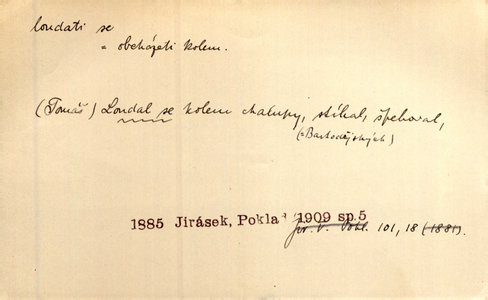 loudati se
= obcházeti kolem.
(Tomáš) Loudal se kolem chalupy, slíhal, špehoval,
(= Bartodějských)
1885 Jirásek, Pokla 1909 sp.5
101, 18 (1881).